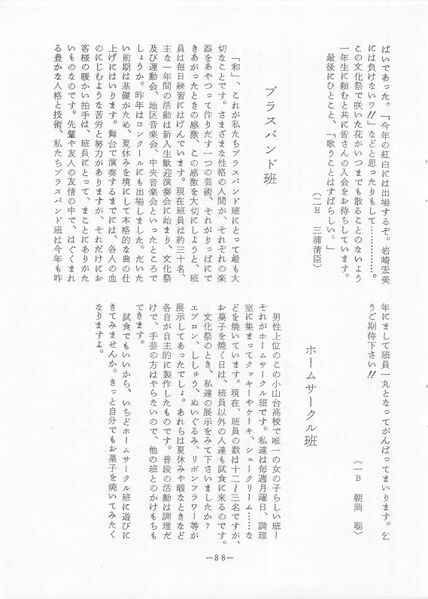 ばいであった。「今年の紅白には出場するぞ。岩崎宏美
には負けないワ!!」などと思ったりもして…………。
この文化祭で咲いた花がいつまでも散ることのないよう
一年生に頼むと共に皆さんの入会をお待ちしています。
最後にひとこと、「歌うことはすばらしい。」
(二H　三浦清臣)
ブラスバンド班
「和」、これが私たちブラスバンド班にとって最も大
切なことです。さまざまな性格の人間が、それぞれの楽
器をあやつって作りだす一つの芸術、それがりっぱにで
きあがったときの感激、この感激を大切にしようと、班
員は毎日練習にはげんでいます。現在班員は約三十名。
主な一年間の活動は新入生歓迎演奏会に始まり、文化祭
及び運動会、地区音楽会、中央音楽会といったところで
しょうか。昨年はコンクールにも出場しました。だいた
い前期は基礎がため、夏休みを境にして本格的な曲の仕
上げにはいります。舞台で演奏するまでには、各人の血
のにじむような苦労と努力がありますが、それだけにお
客様の暖かい拍手は、班員にとって、まことにありがた
いものなのです。先輩や友人の友情の中で、はぐくまれ
る豊かな人格と技術、私たちブラスバンド班は今年も昨
年にまして班員一丸となってがんばってまいります。乞
うご期待下さい!!
(一B　朝岡　聡)
ホームサークル班
男性上位のこの小山台高校で唯一の女の子らしい班ー
それがホームサークル班です。私達は毎週月曜日、調理
室に集まってクッキーやケーキ、シュークリーム……な
どを焼いています。現在、班員の数は十二〜三名ですが、
お菓子を焼く日は、班員以外の人達も試食に来るのです。
文化祭のとき、私達の展示をみて下さいましたか？
エプロン、ししゅう、ぬいぐるみ、リボンフラワー等が
展示してあったでしょ。あれらは夏休みや暇なときなど
各自が自主的に製作したものです。普段の活動は調理だ
けで、手芸の方はやらないので、他の班とのかけもちも
できます。
試食でもいいから、いちどホームサークル班に遊びに
きてみませんか。きっと自分でもお菓子を焼いてみたく
なりますよ。
—38—